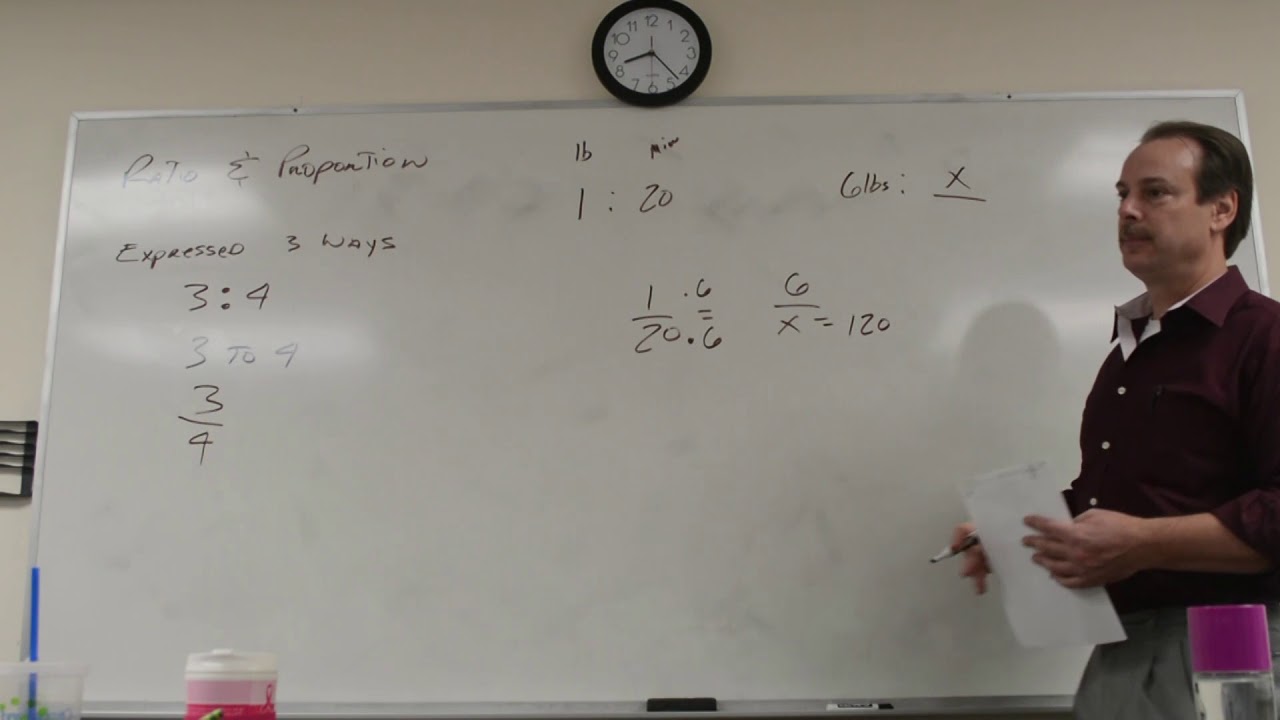 12
11 1
10 2
9 3
8 4
7 6 5
RATIO & PROPORTION
EXPRESSED 3 WAYS
3:4
3 TO 4
3
4
lb min
1 : 20
6lbs: X
1 .6 = 6
20.6 X = 120